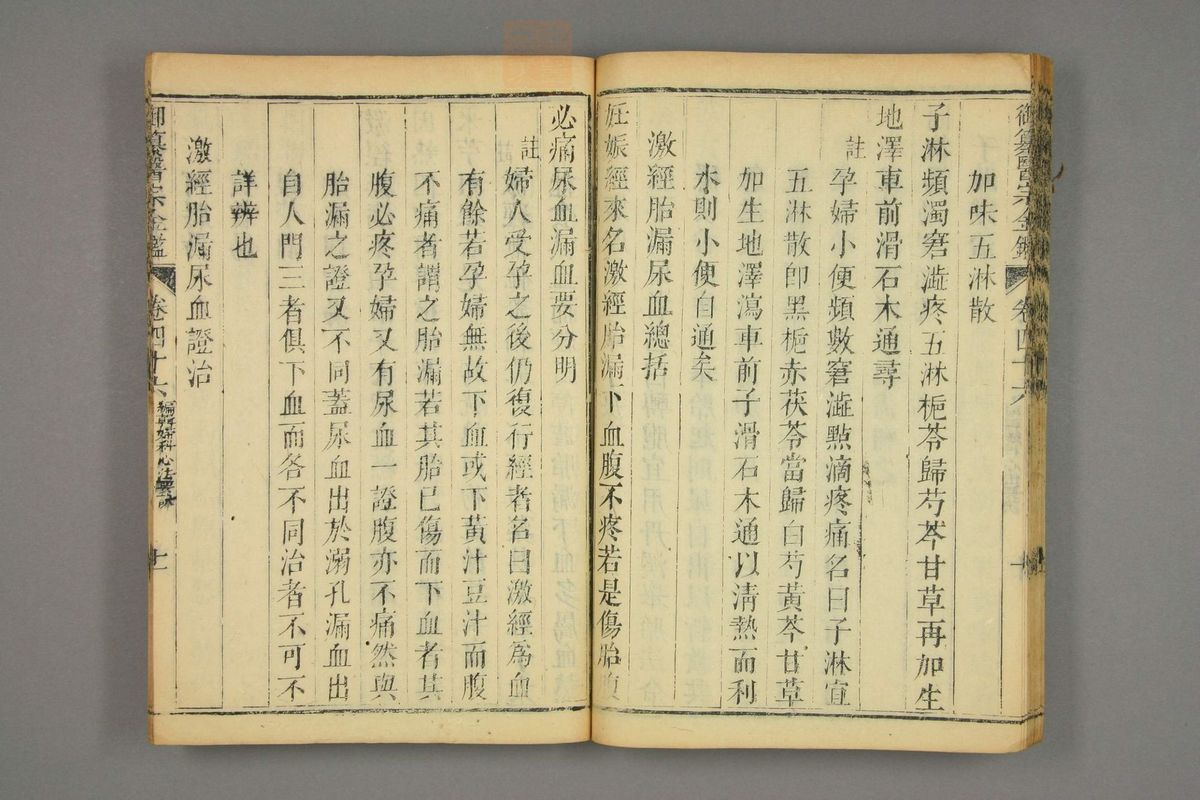 加味五淋散
子淋頻濁窘澁疼五淋梔苓歸芍芩甘草再加生
地澤車前滑石木通尋
註孕婦小便頻數窘澁點滴疼痛名曰子淋宜
五淋散卽黑梔赤茯苓當歸白芍黃芩甘草
加生地澤瀉車前子滑石木通以淸熱而利
水則小便自通矣
激經胎漏尿血總括
妊娠經來名激經胎漏下血腹不疼若是傷胎腹
必痛尿血漏血要分明
註婦人受孕之後仍復行經者名曰激經爲血
有餘若孕婦無故下血或下黃汁豆汁而腹
不痛者謂之胎漏若其胎已傷而下血者其
腹必疼孕婦又有尿血一證腹亦不痛然與
胎漏之證又不同蓋尿血出於溺孔漏血出
自人門三者俱下血而各不同治者不可不
詳辨也
激經胎漏尿血證治
御纂醫宗金鑑 卷四十六 編輯婦科心法要訣 十一